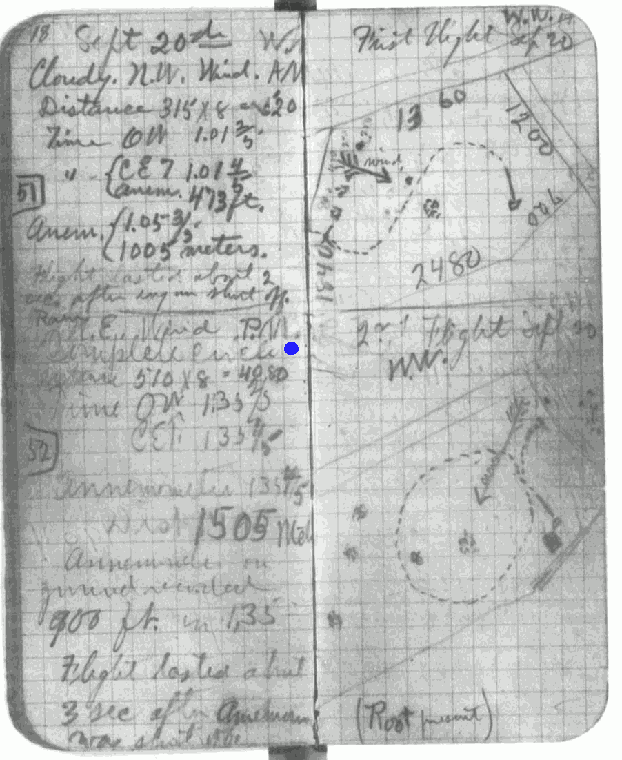 18 Sept 20th
Cloudy. N.W. Wind. AM
Distance 315 X 8 =
Time OW 1.01 2/5
" {CET 1.01 4/5
anem. 473 ft.
51
Anem. {1.05 3/5
1005 meters.
Flight lasted about 2
sec after engine shut off.
N.E. Wind P.M.
Complete Circle
Distance 510 X 8 = 4080
Time OW 1.35
CET 1.35
52
Annemometer 1.35 4/5
Dist 1505 Met
Annemometer on
ground recorded
900 ft. in 1,35
Flight lasted about
3 sec after Anemom
was shut off
W.W.
First Flight Sep 20
13 60
1200
wind
700
2480
1340
2nd Flight Sept 20
N.W.
wind
(Root present)